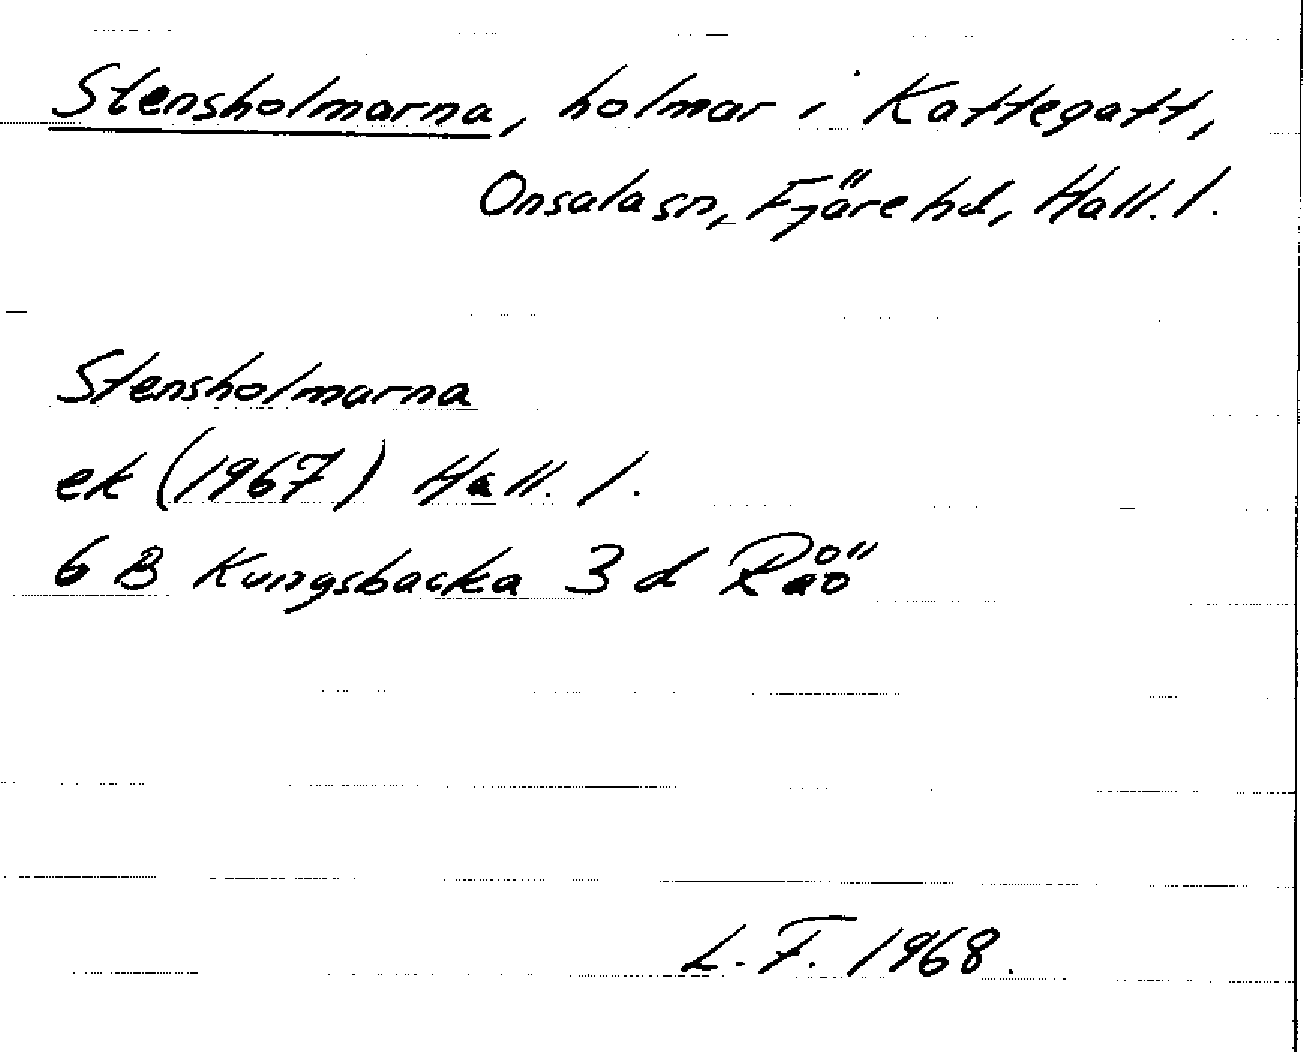 Stensholmarna, holmar i Kattegatt,
Onsala sn, Fjäre hd, Hall. l.
Stensholmarna
ek (1967) Hall. l.
6 B Kungsbacka 3 d Råö
L. F. 1968.